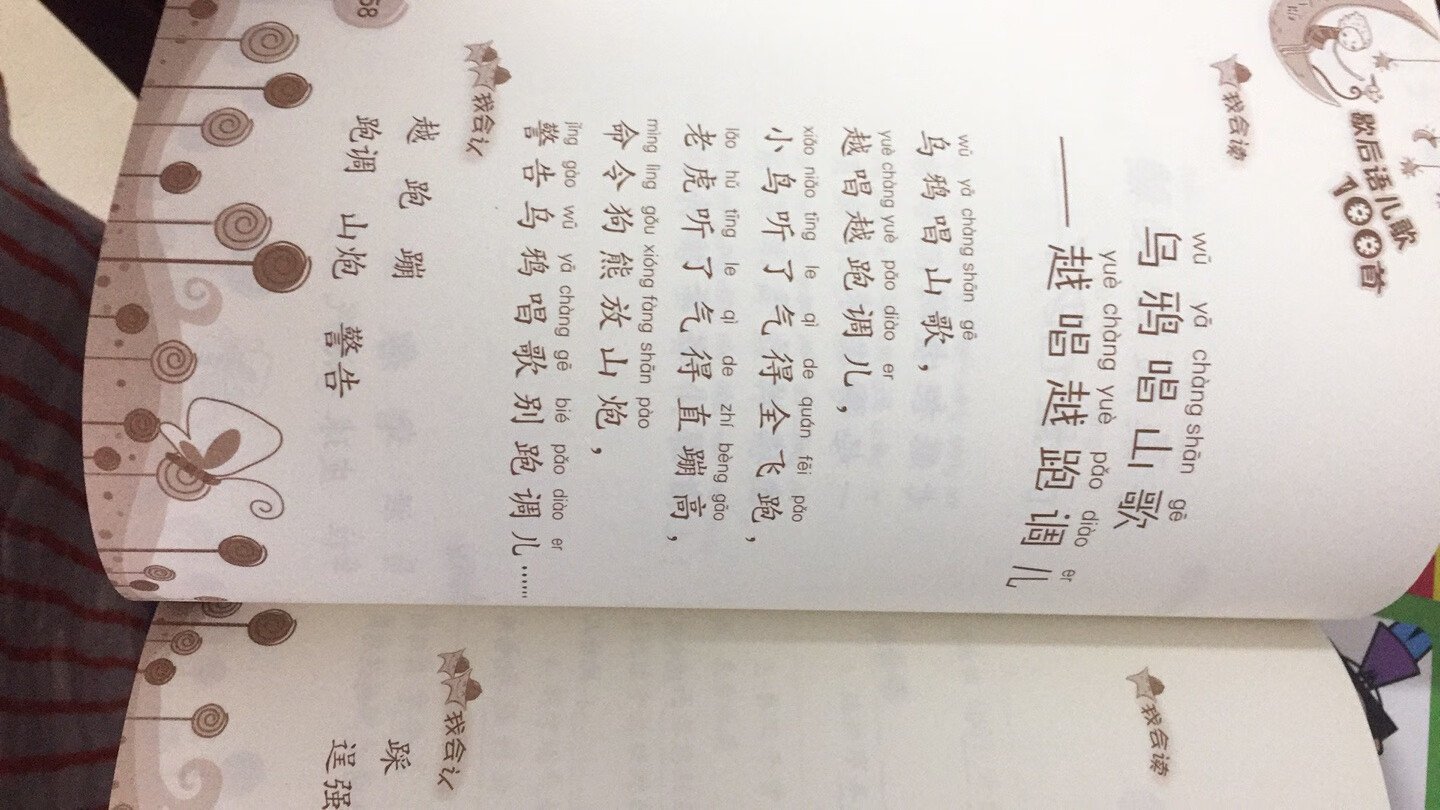 歇后语儿歌
100首
我会读
wū yā chàng shān gē
乌鸦唱山歌
yuè chàng yuè pǎo diào er
——越唱越跑调儿
wū yā chàng shān gē
乌鸦唱山歌，
yuè chàng yuè pǎo diào er
越唱越跑调儿，
xiǎo niǎo tīng le qì de quán fēi pǎo
小鸟听了气得全飞跑，
lǎo hǔ tīng le qì de zhí bèng gāo
老虎听了气得直蹦高，
mìng lìng gǒu xióng fàng shān pào
命令狗熊放山炮，
jǐng gào wū yā chàng gē bié pǎo diào er
警告乌鸦唱歌别跑调儿……
我会认
越 跑 蹦
跑调 山炮 警告
58
我会读
我会认
踩
逞强